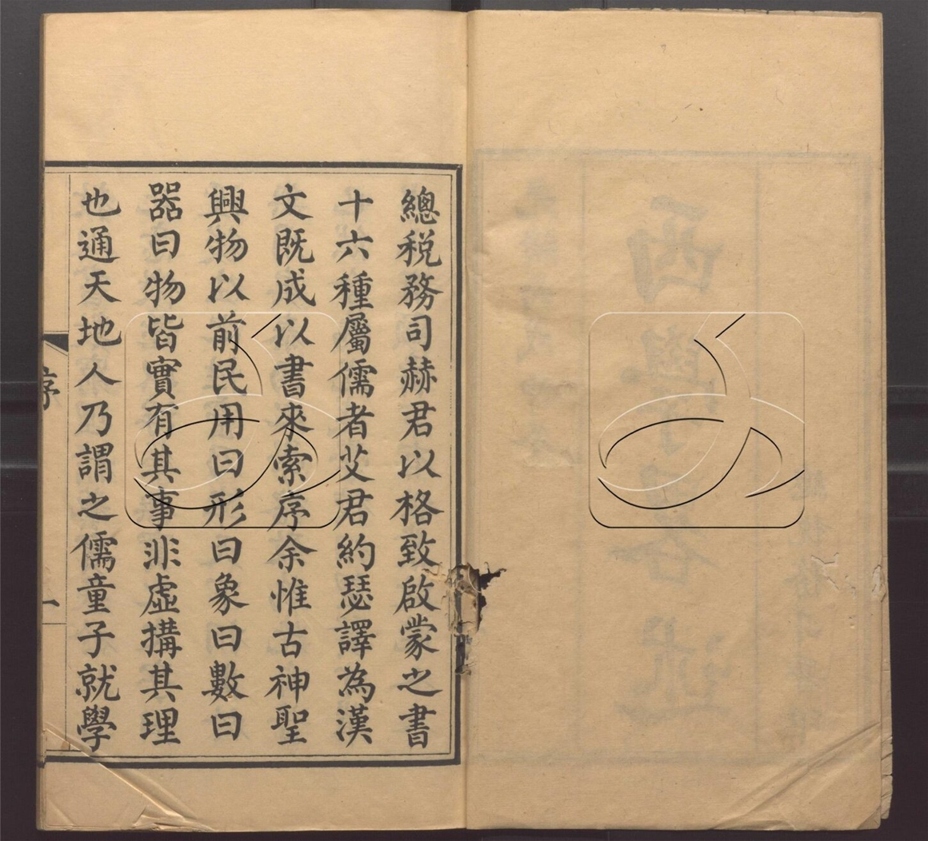 總稅務司赫君以格致啟蒙之書
十六種屬儒者艾君約瑟譯為漢
文既成以書來索序余惟古神聖
興物以前民用曰形曰象曰數曰
器曰物皆實有其事非虛搆其理
也通天地人乃謂之儒童子就學
序
一
西學畧述